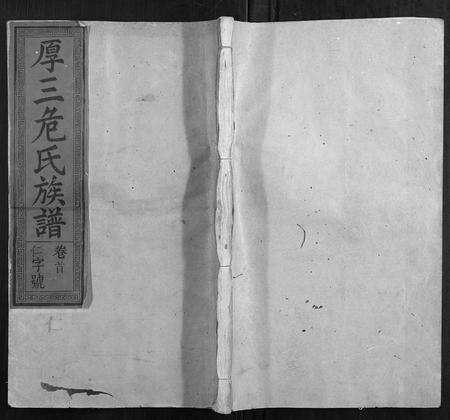 厚三危氏族譜
卷首
仁字號
仁